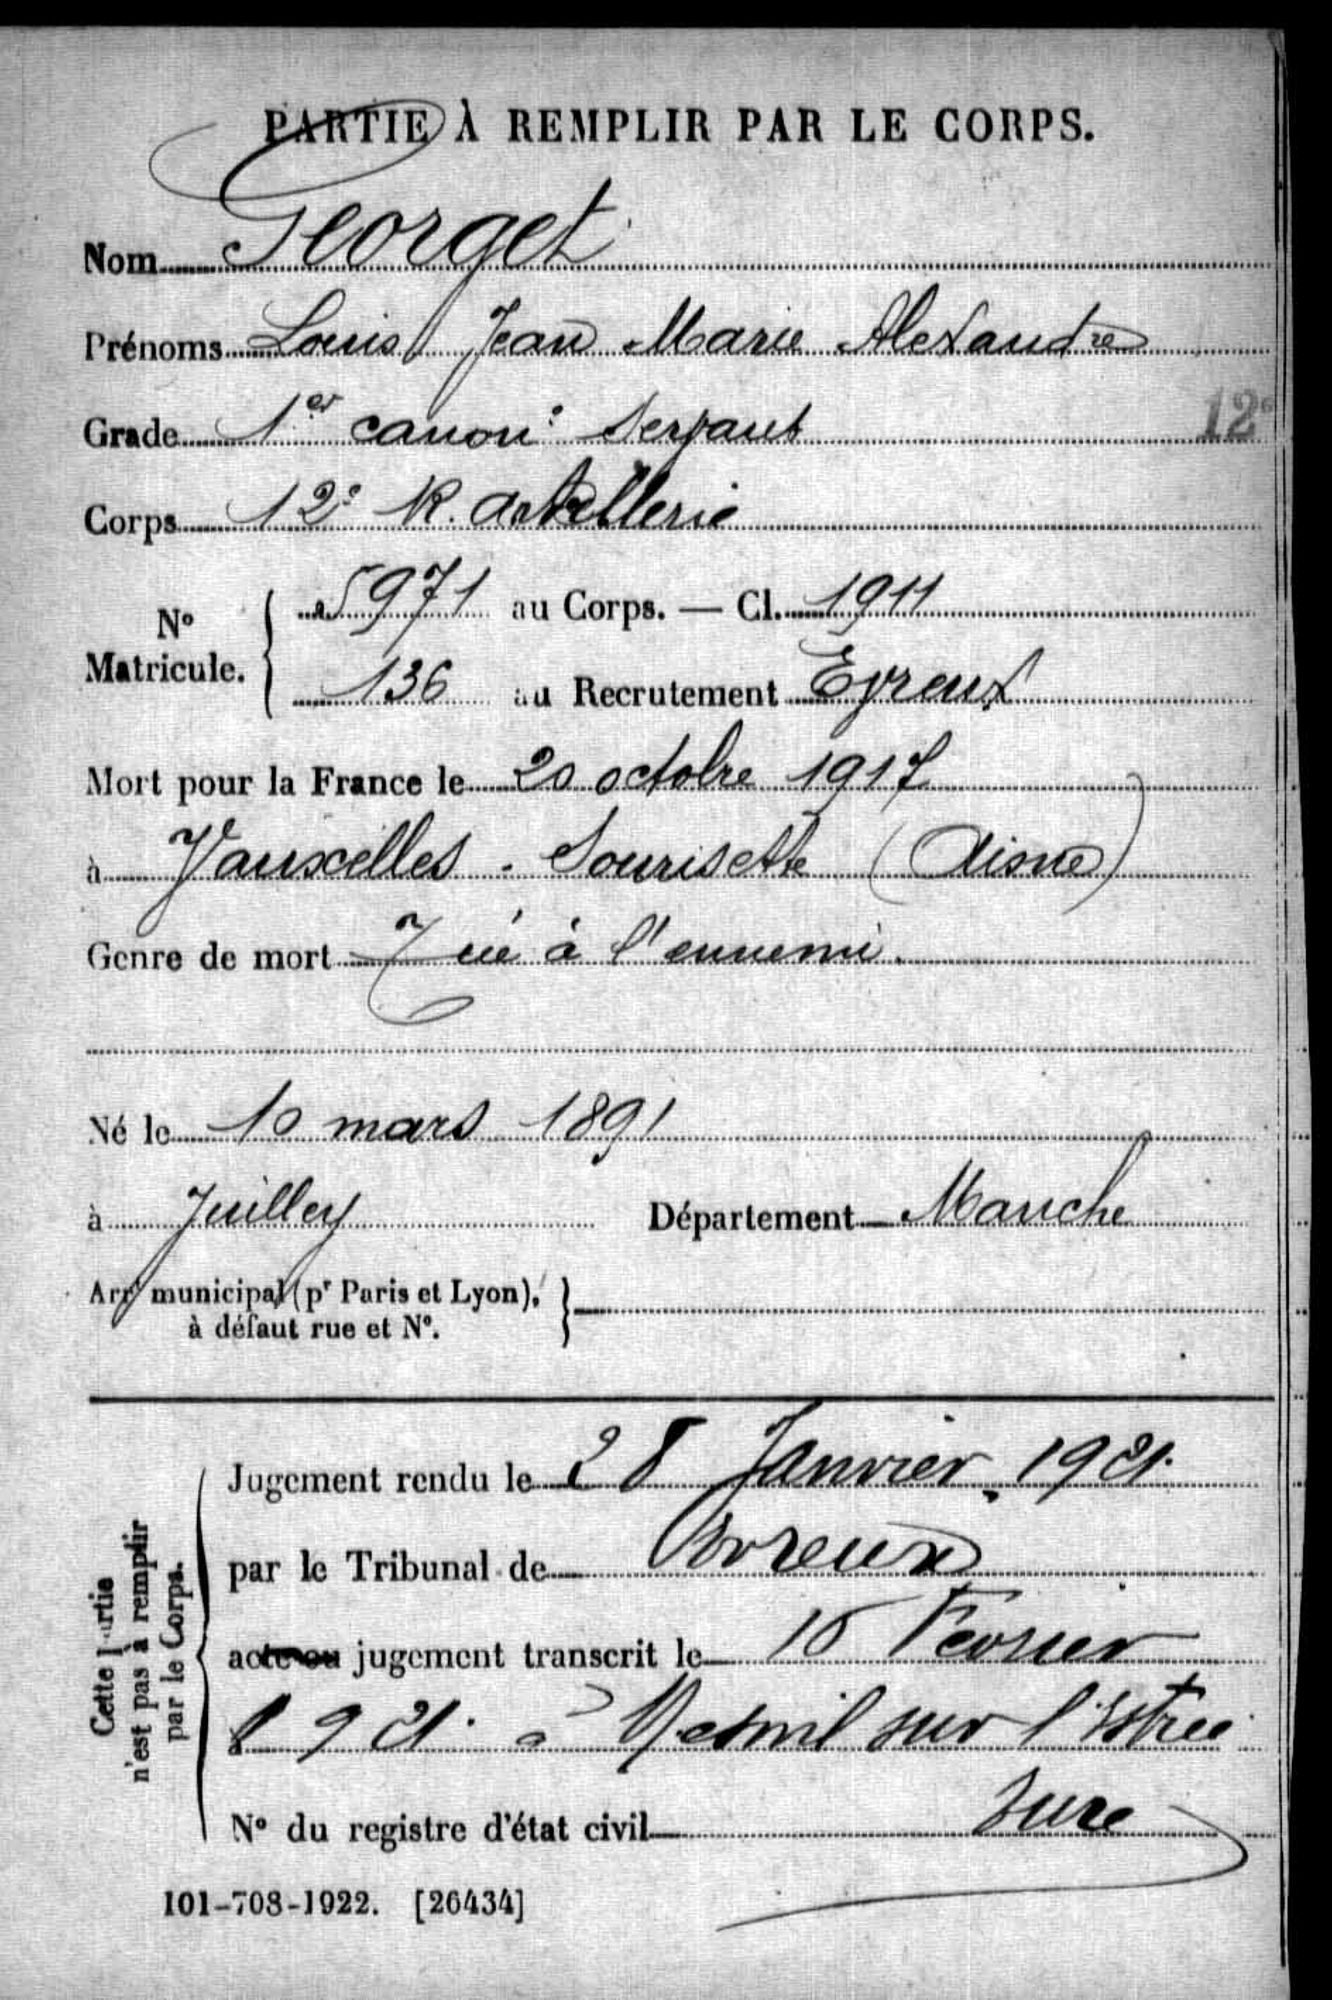 PARTIE À REMPLIR PAR LE CORPS.
Nom Georget
Prénoms Louis Jean Marie Alexandre
Grade 1er canon: Servant
12e
Corps 12e R. Artillerie
No Matricule. 5971 au Corps. — Cl. 1911
136 au Recrutement Evreux
Mort pour la France le 20 octobre 1917
à Vauxelles - Sourisette (Aisne)
Genre de mort Tué à l'ennemi.
Né le 10 mars 1891
à Juilley Département Manche
Arrt municipal (pr Paris et Lyon),
à défaut rue et No.
Cette partie
n'est pas à remplir
par le Corps.
Jugement rendu le 28 Janvier 1921.
par le Tribunal de Evreux
acte ou jugement transcrit le 15 Février
1921. à Mesnil sur l'Estrée
Eure
No du registre d'état civil
101-708-1922. [26434]